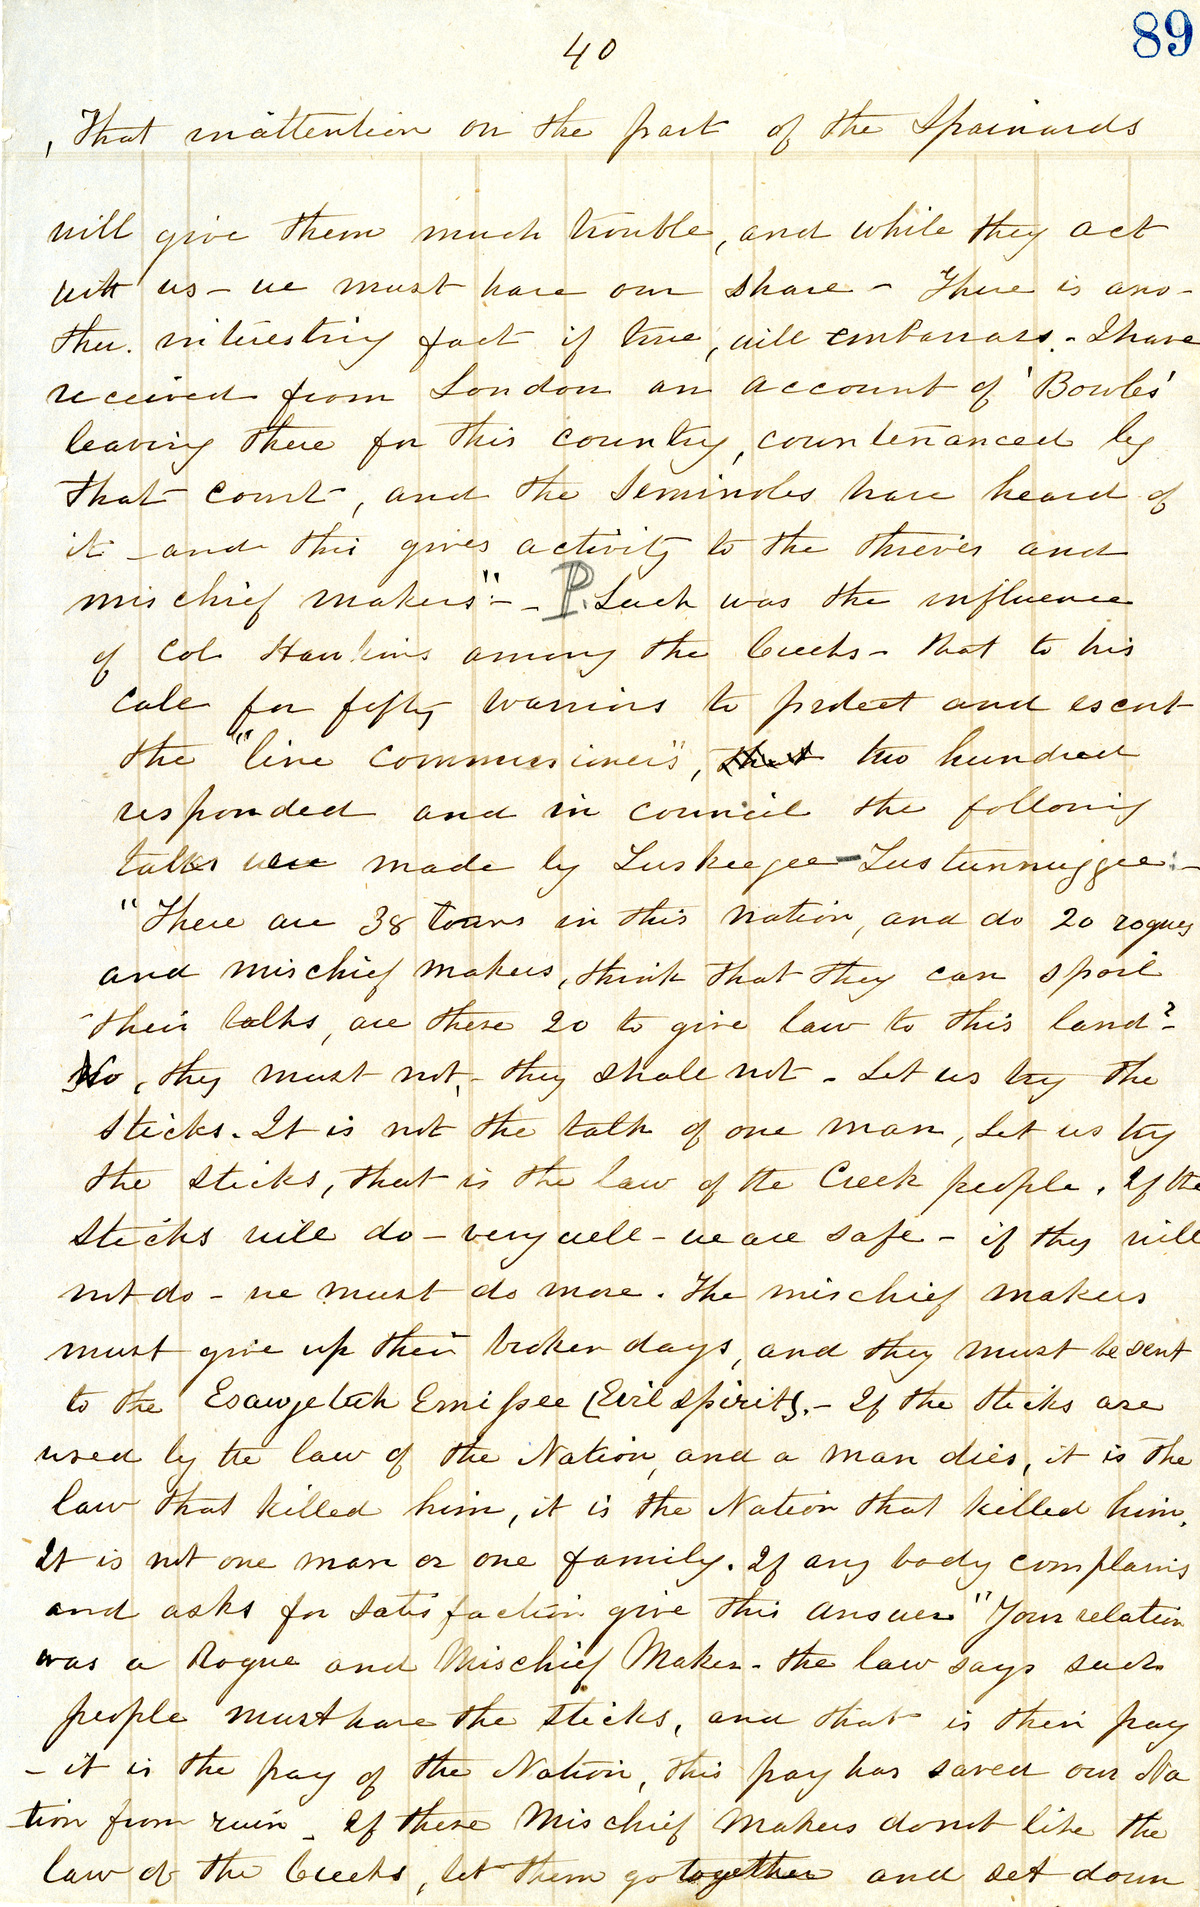 89
40
, That inattention on the part of the Spainards
will give them much trouble, and while they act
with us - we must have our share - There is ano-
ther. interesting fact if true, will embarrass. - I have
received from London an account of 'Bowles'
leaving there for this country, countenanced by
that court, and the Seminoles have heard of
it - and this gives activity to the thieves and
mischief makers" - - P. Such was the influence
of Col Hawkins among the Creeks - that to his
call for fifty warriors to protect and escort
the "line commissioners", that two hundred
responded and in council the following
talks were made by Tuskeegee - Tustunnuggee: -
"There are 38 towns in this nation, and do 20 rogues
and mischief makers, think that they can spoil
their talks, are these 20 to give law to this land? -
No, they must not, - they shall not - Let us try the
sticks. It is not the talk of one man, Let us try
the sticks, that is the law of the Creek people. If the
sticks will do - very well - we are safe - if they will
not do - we must do more. The mischief makers
must give up their broken days, and they must be sent
to the Esawgetuh Emissee (Evil spirits). - If the sticks are
used by the law of the Nation, and a man dies, it is the
law that killed him, it is the Nation that killed him.
It is not one man or one family. If any body complains
and asks for satisfaction give this answer "Your relation
was a Rogue and Mischief Maker - the law says such
people must have the sticks, and that is their pay
- it is the pay of the Nation, this pay has saved our Na
tion from ruin - If these Mischief Makers do not like the
law of the Creeks, let them go together and set down